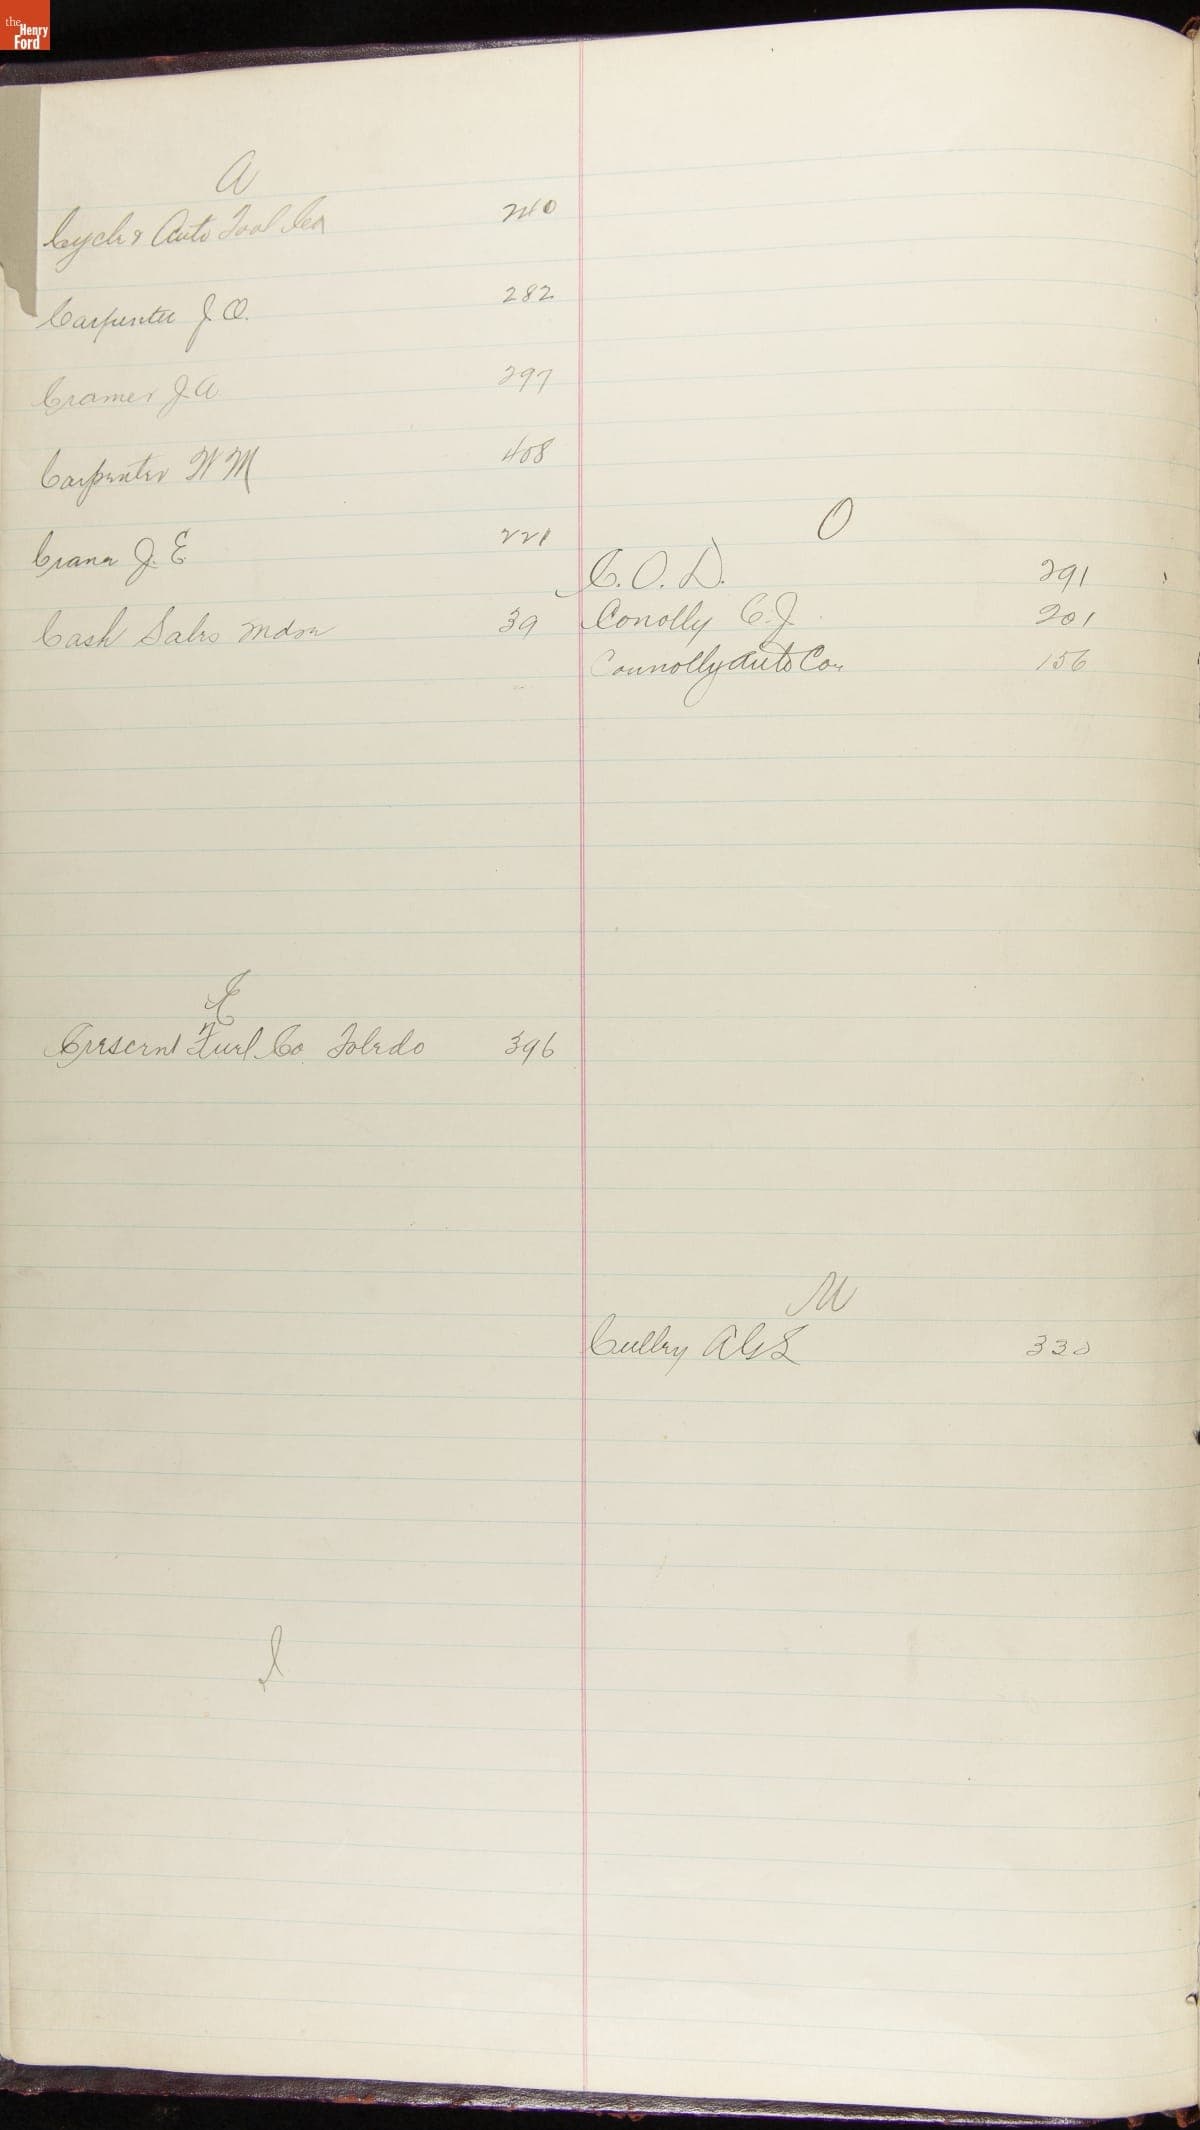 the Henry Ford
A
Cycle & Auto Tool Co 240
Carpenter J. O. 282
Cramer J A 297
Carpenter W M 408
Crane J. E. 221
Cash Sales Mdse 39
E
Crescent Fuel Co. Toledo 396
I
O
C. O. D. 291
Conolly C. J. 201
Connolly Auto Co. 156
U
Culley 330